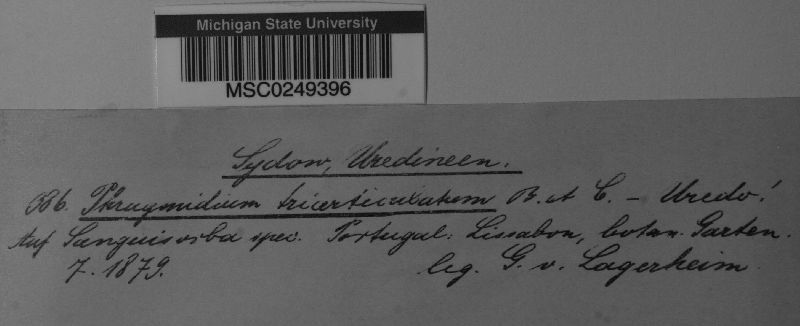 Michigan State University
MSC0249396
Sydow, Uredineen.
386. Phragmidium triarticulatum B. et C. – Uredo!
Auf Sanguisorba spec. Portugal: Lissabon, botan. Garten.
7. 1879. leg. G. v. Lagerheim.